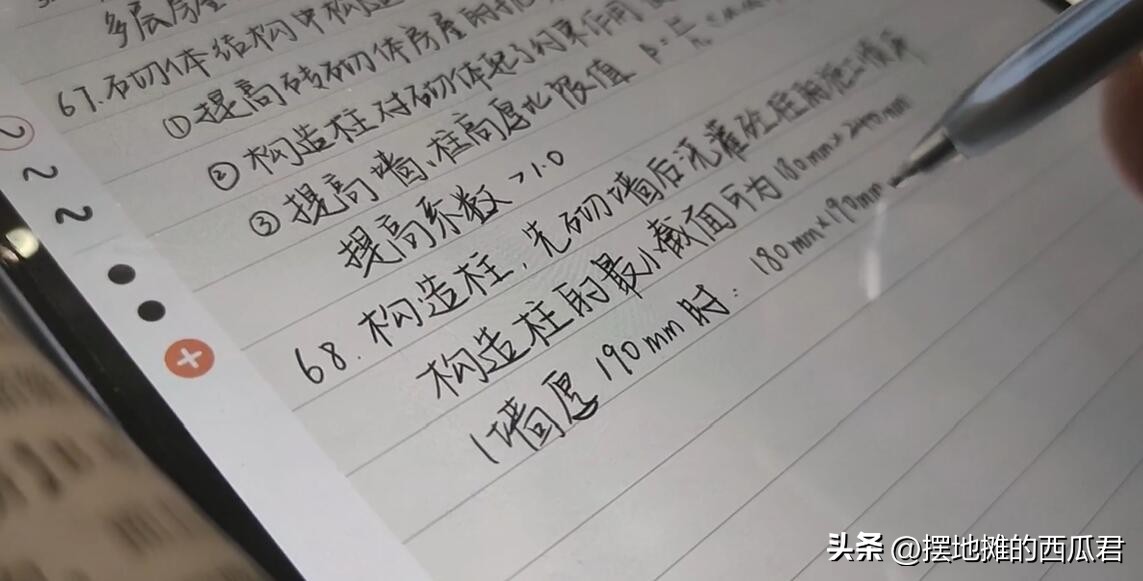 多层房屋
67.石切体结构中构造
①提高砖砌体房屋的抗
②构造柱对砌体起了约束作用
③提高墙、柱高厚比限值 β=
提高系数>1.0
68.构造柱,先砌墙后浇灌砼柱的施工顺序
构造柱的最小截面可为180mm×240mm
(墙厚190mm时:180mm×190mm
头条 @摆地摊的西瓜君